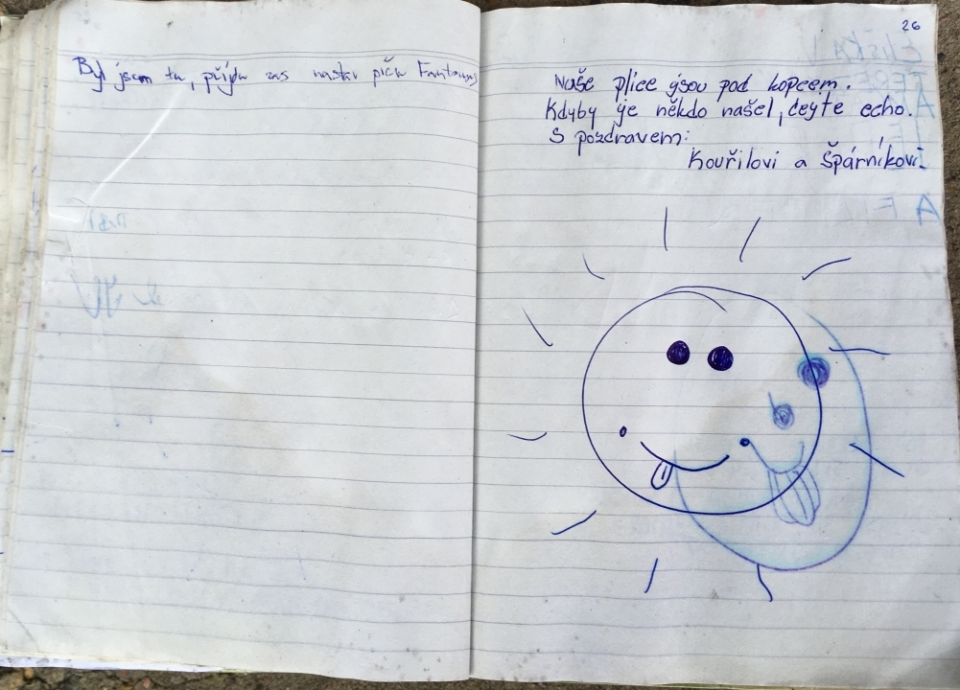 Byl jsem tu, přijdu zas
26
Naše plíce jsou pod kopcem.
Kdyby je někdo našel, dejte echo.
S pozdravem:
Kouřilovi a Špárníkovi.